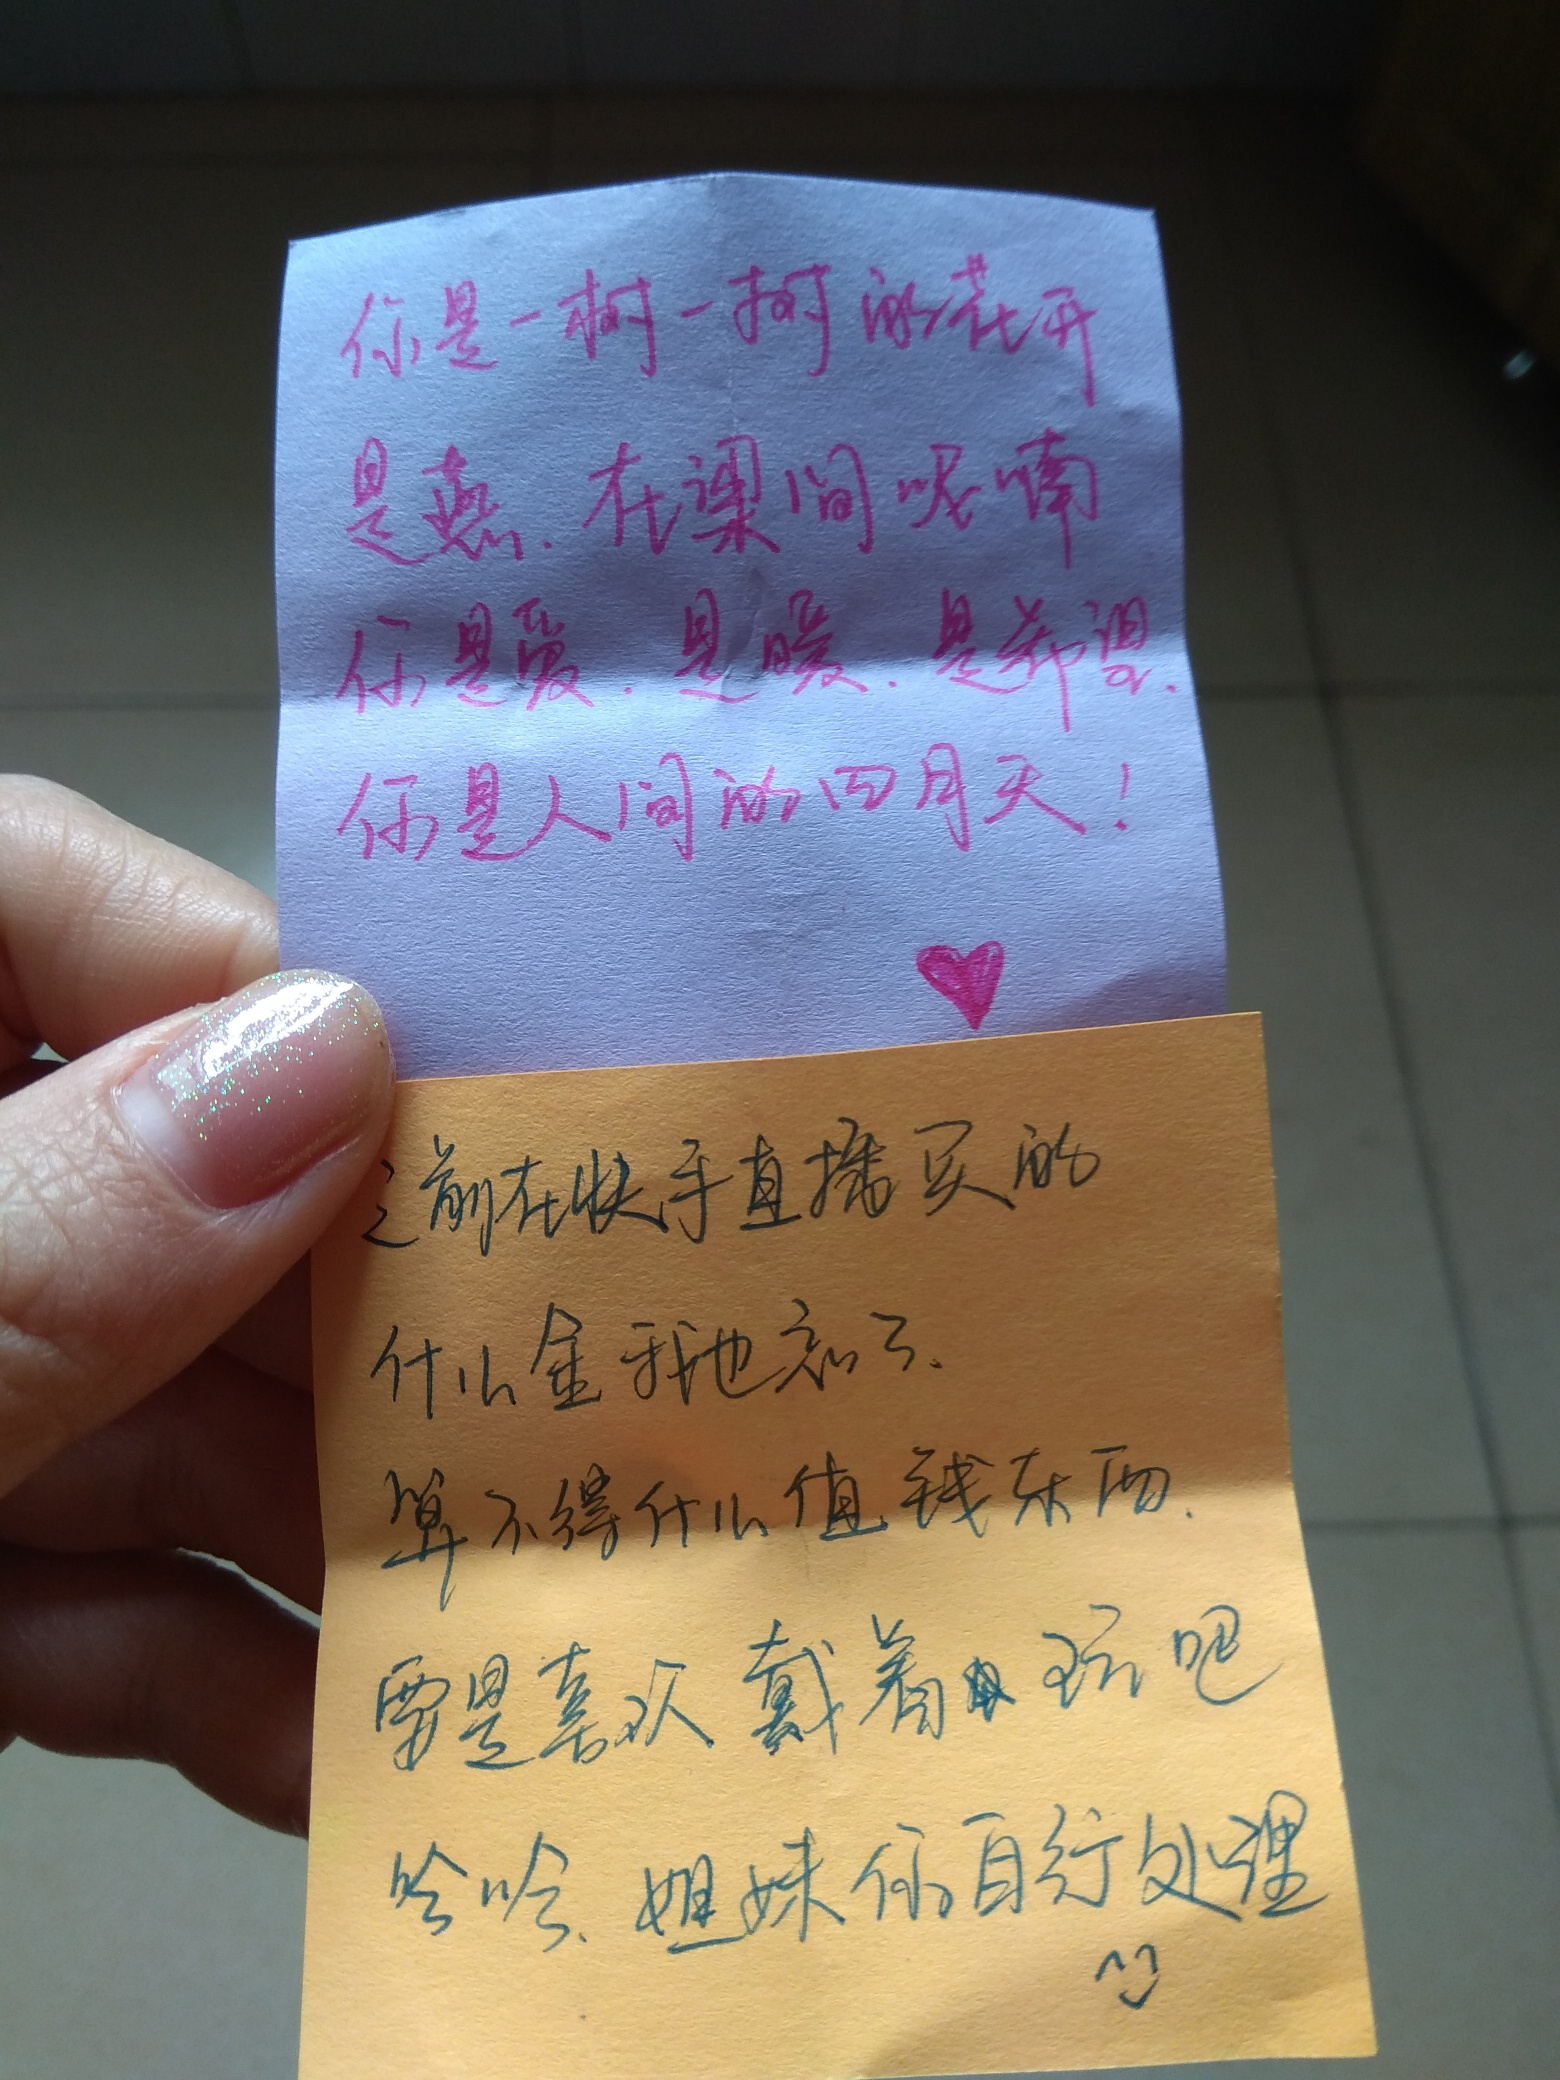 你是一树一树的花开
是燕.在梁间呢喃
你是爱.是暖.是希望.
你是人间的四月天!
之前在快手直播买的
什么金我也忘了.
算不得什么值钱东西.
要是喜欢戴着玩吧
哈哈.姐妹你自行处理